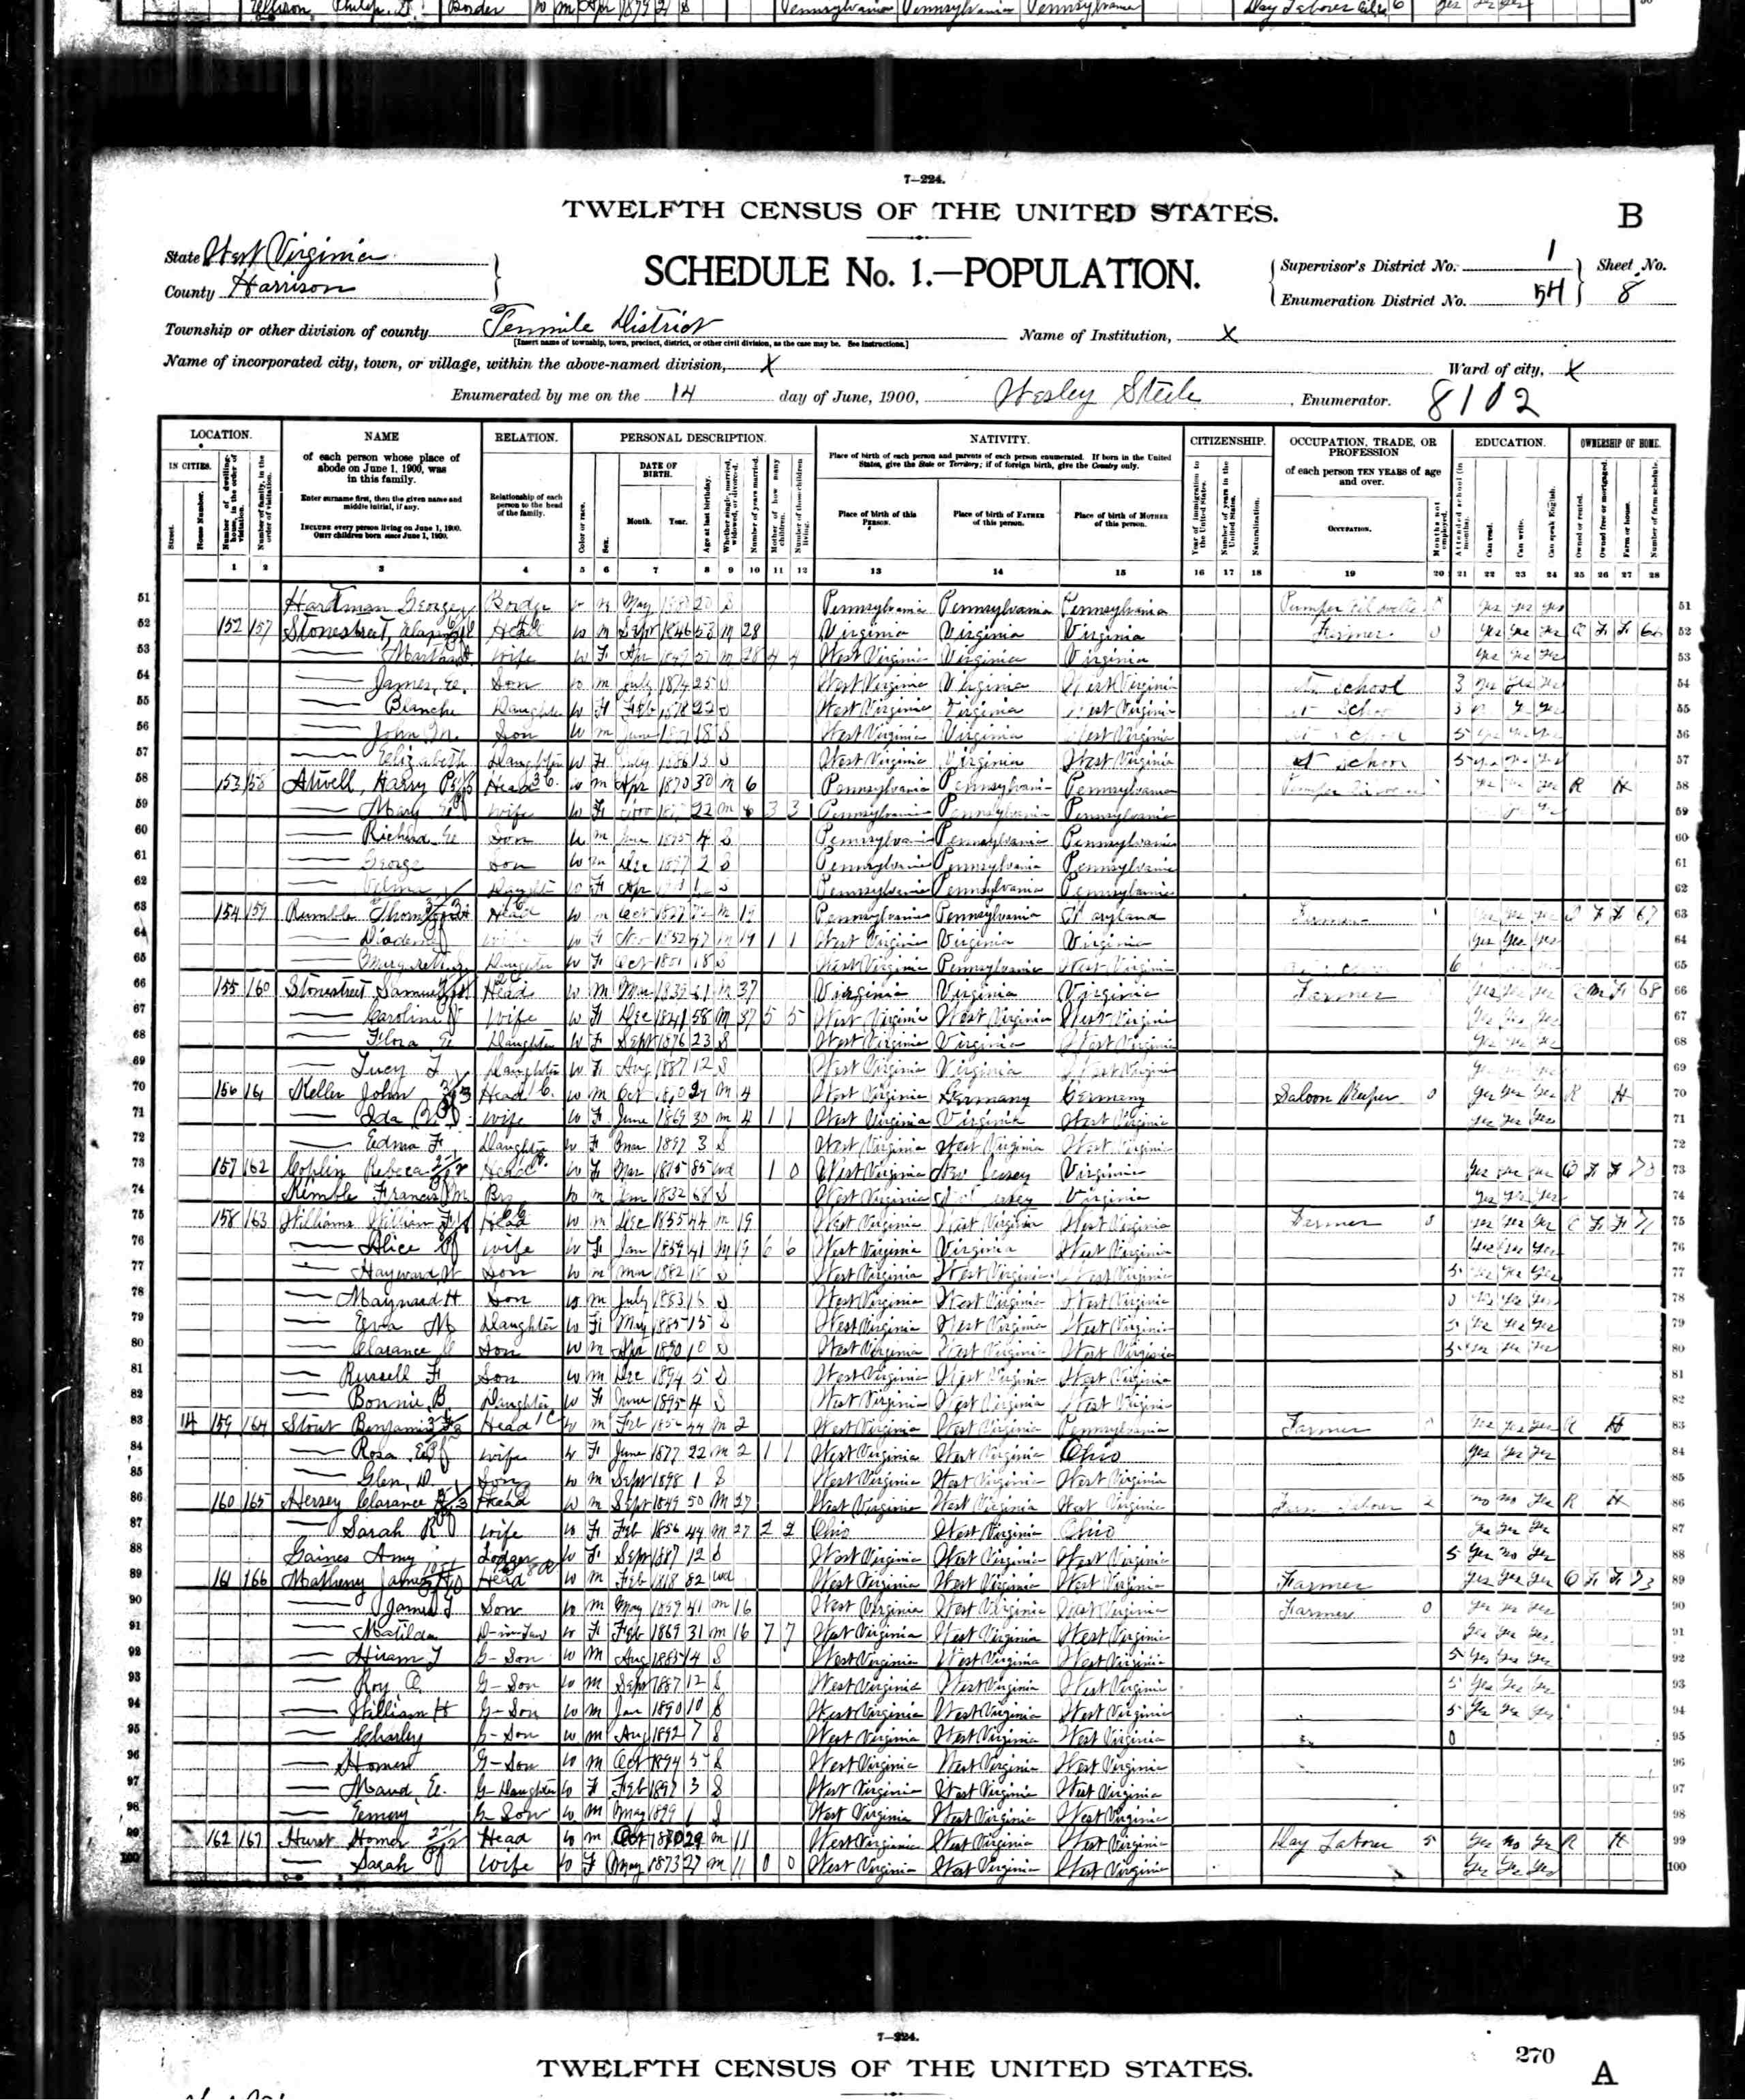 Ellison, Philip D. Border W M Apr 1879 21 S Pennsylvania Pennsylvania Pennsylvania Day Laborer 6 yes yes yes
7—224.
TWELFTH CENSUS OF THE UNITED STATES.
B
State West Virginia
County Harrison
SCHEDULE No. 1.—POPULATION.
Supervisor's District No. 1
Enumeration District No. 54
Sheet No. 8
Township or other division of county Tenmile District
[Insert name of township, town, precinct, district, or other civil division, as the case may be. See instructions.]
Name of Institution, X
Name of incorporated city, town, or village, within the above-named division, X
Ward of city, X
Enumerated by me on the 14 day of June, 1900, Wesley Steele, Enumerator.
8102
LOCATION. NAME RELATION. PERSONAL DESCRIPTION. NATIVITY. CITIZENSHIP. OCCUPATION, TRADE, OR PROFESSION EDUCATION. OWNERSHIP OF HOME.
IN CITIES. Street. House Number.
Number of dwelling-house, in the order of visitation.
Number of family, in the order of visitation.
of each person whose place of abode on June 1, 1900, was in this family.
Enter surname first, then the given name and middle initial, if any.
INCLUDE every person living on June 1, 1900.
OMIT children born since June 1, 1900.
Relationship of each person to the head of the family.
Color or race. Sex. DATE OF BIRTH. Month. Year. Age at last birthday. Whether single, married, widowed, or divorced. Number of years married. Mother of how many children. Number of these children living.
Place of birth of each person and parents of each person enumerated. If born in the United States, give the State or Territory; if of foreign birth, give the Country only.
Place of birth of this PERSON. Place of birth of FATHER of this person. Place of birth of MOTHER of this person.
Year of immigration to the United States. Number of years in the United States. Naturalization.
of each person TEN YEARS of age and over.
OCCUPATION. Months not employed.
Attended school (in months). Can read. Can write. Can speak English.
Owned or rented. Owned free or mortgaged. Farm or house. Number of farm schedule.
1 2 3 4 5 6 7 8 9 10 11 12 13 14 15 16 17 18 19 20 21 22 23 24 25 26 27 28
51 Hartman George Border W M May 20 S Pennsylvania Pennsylvania Pennsylvania Pumper yes yes yes 51
52 152 157 Stonestreet, Head W M Sept 1846 53 M 28 Virginia Virginia Virginia Farmer 0 yes yes yes O F F 66 52
53 Martha wife W F Apr M 28 4 4 West Virginia Virginia Virginia yes yes yes 53
54 James, E. Son W M July 1874 25 S West Virginia Virginia West Virginia At School 3 yes yes yes 54
55 Blanche Daughter W F Feb 1878 22 S West Virginia Virginia West Virginia At School 3 55
56 John Son W M June 18 S West Virginia Virginia West Virginia At School 5 yes yes yes 56
57 Elizabeth Daughter W F July 1886 13 S West Virginia Virginia West Virginia At School 5 57
58 153 158 Atwell, Harry Head W M Apr 1870 30 M 6 Pennsylvania Pennsylvania Pennsylvania Pumper R H 58
59 Mary E wife W F Nov 22 M 6 3 3 Pennsylvania Pennsylvania Pennsylvania 59
60 Richard E Son W M June 1895 4 S Pennsylvania Pennsylvania Pennsylvania 60
61 George Son W M Dec 1897 2 S Pennsylvania Pennsylvania Pennsylvania 61
62 Daughter W F Apr S Pennsylvania Pennsylvania Pennsylvania 62
63 154 159 Rumble Head W M Oct 1827 72 M 19 Pennsylvania Pennsylvania Maryland Farmer O F F 67 63
64 wife W F Nov 1852 47 M 19 1 1 West Virginia Virginia Virginia yes yes yes 64
65 Daughter W F Oct 1881 18 S West Virginia Pennsylvania West Virginia 6 65
66 155 160 Stonestreet Samuel Head W M Mar 1839 61 M 37 Virginia Virginia Virginia Farmer yes yes yes O M F 68 66
67 Caroline wife W F Dec 1841 58 M 37 5 5 West Virginia West Virginia West Virginia yes yes yes 67
68 Flora, E Daughter W F Sept 1876 23 S West Virginia Virginia West Virginia yes yes yes 68
69 Lucy F Daughter W F Aug 1887 12 S West Virginia Virginia West Virginia 69
70 156 161 Keller John Head W M Oct 1870 29 M 4 West Virginia Germany Germany Saloon Keeper 0 yes yes yes R H 70
71 Ida wife W F June 1869 30 M 4 1 1 West Virginia Virginia West Virginia yes yes yes 71
72 Edna F Daughter W F Mar 1897 3 S West Virginia West Virginia West Virginia 72
73 157 162 Coplin Rebeca Head W F Mar 1815 85 wd 1 0 West Virginia New Jersey Virginia yes yes yes O F F 70 73
74 Kimble Francis M Bro W M Jan 1832 68 S West Virginia New Jersey Virginia yes yes yes 74
75 158 163 Williams William Head W M Dec 1855 44 M 19 West Virginia West Virginia West Virginia Farmer 0 yes yes yes O F F 71 75
76 Alice wife W F Jan 1859 41 M 19 6 6 West Virginia Virginia West Virginia yes yes yes 76
77 Hayward W Son W M Mar 1882 18 S West Virginia West Virginia West Virginia 5 yes yes yes 77
78 Maynard H Son W M July 1883 16 S West Virginia West Virginia West Virginia yes yes yes 78
79 Eva M Daughter W F May 1885 15 S West Virginia West Virginia West Virginia 5 yes yes yes 79
80 Clarance C Son W M Apr 1890 10 S West Virginia West Virginia West Virginia 5 yes yes yes 80
81 Russell F Son W M Dec 1894 5 S West Virginia West Virginia West Virginia 81
82 Bonnie B Daughter W F June 1895 4 S West Virginia West Virginia West Virginia 82
83 14 159 164 Stout Benjamin F Head W M Feb 1856 44 M 2 West Virginia West Virginia Pennsylvania Farmer yes yes yes R H 83
84 Rosa E wife W F June 1877 22 M 2 1 1 West Virginia West Virginia Ohio yes yes yes 84
85 Glen, D. Son W M Sept 1898 1 S West Virginia West Virginia West Virginia 85
86 160 165 Hersey Clarance Head W M Sept 1849 50 M 27 West Virginia West Virginia West Virginia Farm Laborer 2 no no yes R H 86
87 Sarah R wife W F Feb 1856 44 M 27 2 2 Ohio West Virginia Ohio yes yes yes 87
88 Gaines Amy Lodger W F Sept 1887 12 S West Virginia West Virginia West Virginia 5 yes no yes 88
89 161 166 Matheny James Head W M Feb 1818 82 wd West Virginia West Virginia West Virginia Farmer yes yes yes O F F 73 89
90 James T Son W M May 1859 41 M 16 West Virginia West Virginia West Virginia Farmer 0 yes yes yes 90
91 Matilda D-in-Law W F Feb 1869 31 M 16 7 7 West Virginia West Virginia West Virginia yes yes yes 91
92 Hiram T G-Son W M Aug 1885 14 S West Virginia West Virginia West Virginia 5 yes yes yes 92
93 Roy G-Son W M Sept 1887 12 S West Virginia West Virginia West Virginia 5 yes yes yes 93
94 William H G-Son W M Jan 1890 10 S West Virginia West Virginia West Virginia 5 yes yes yes 94
95 Charley G-Son W M Aug 1892 7 S West Virginia West Virginia West Virginia 0 95
96 Homer G-Son W M Oct 1894 5 S West Virginia West Virginia West Virginia 96
97 Maud, E. G-Daughter W F Feb 1897 3 S West Virginia West Virginia West Virginia 97
98 Emery G-Son W M May 1899 1 S West Virginia West Virginia West Virginia 98
99 162 167 Hurst Homer Head W M Oct 1870 29 M 11 West Virginia West Virginia West Virginia Day Laborer 5 yes no yes R H 99
100 Sarah wife W F May 1873 27 M 11 0 0 West Virginia West Virginia West Virginia yes yes yes 100
7—224.
TWELFTH CENSUS OF THE UNITED STATES.
270
A